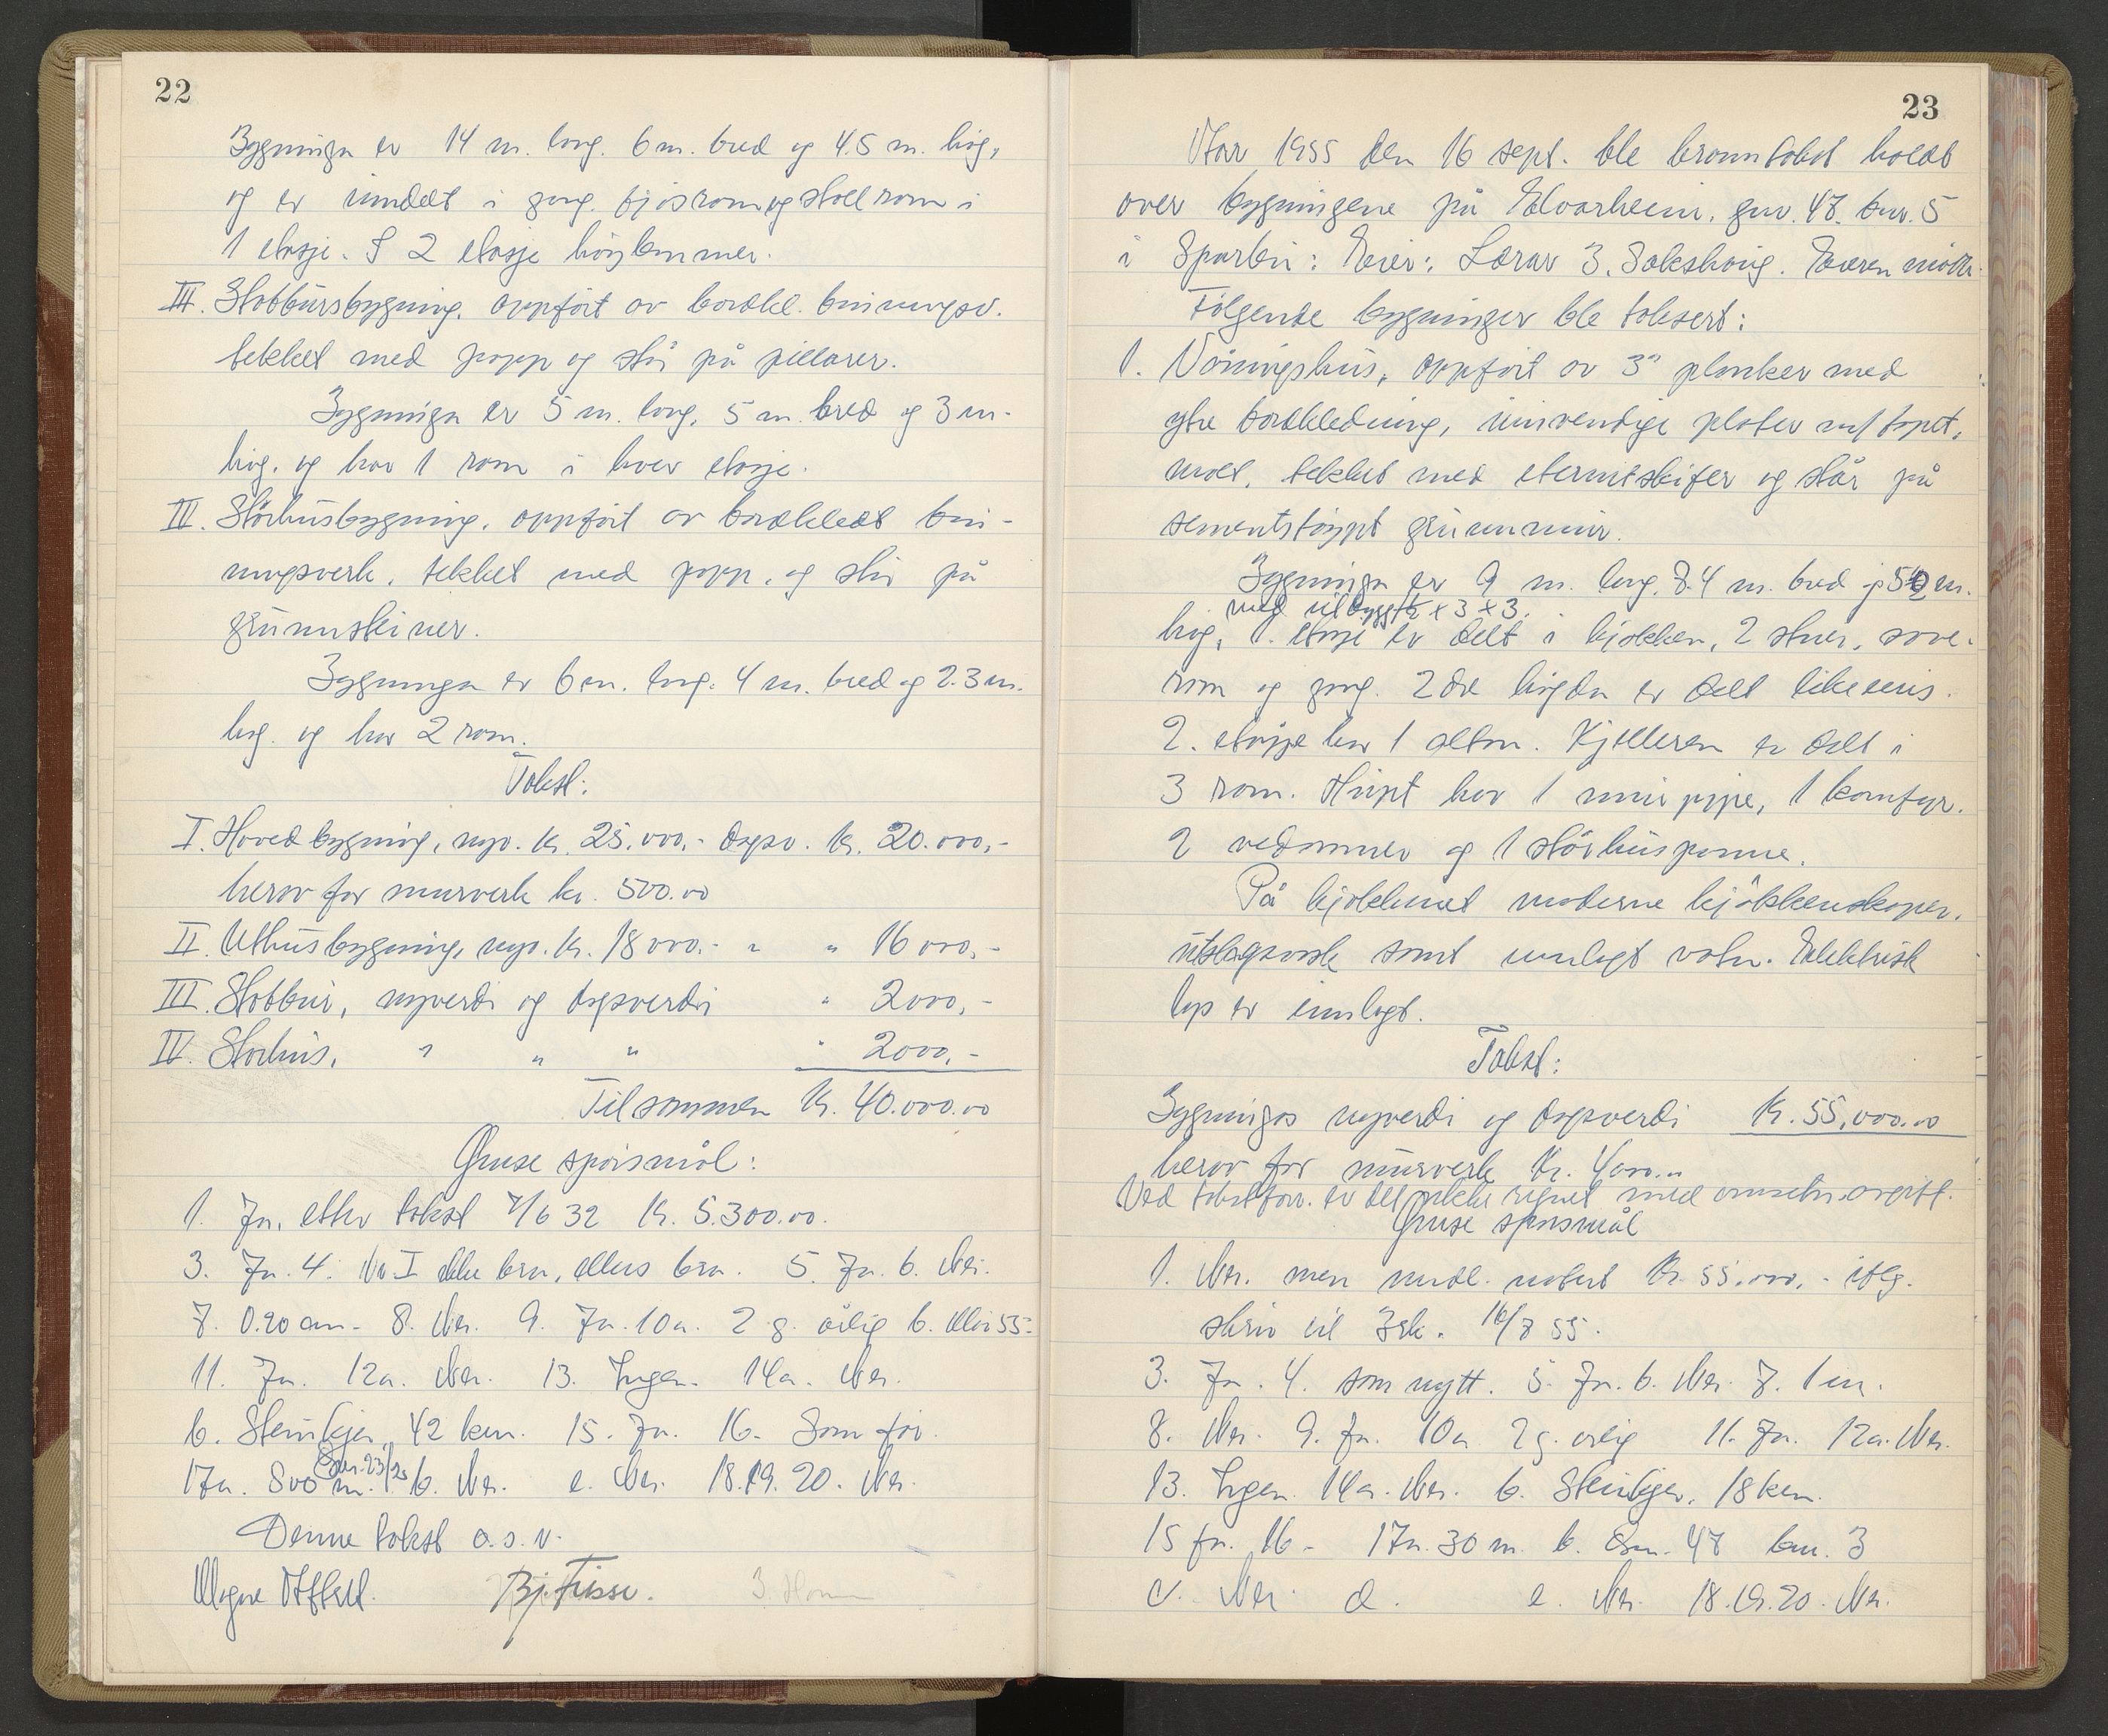 22
Bygninga er 14 m. lang. 6 m. bred og 4.5 m. høg,
og er inndelt i gang. fjøsrom og stallrom i
1 etasje. I 2 etasje høylemmer.
III. Stabbursbygning, oppført av bordkl. bindingsv.
tekket med papp og står på pillarer.
Bygninga er 5 m. lang, 5 m. bred og 3 m.
høg. og har 1 rom i hver etasje.
IV. Størhusbygning, oppført av bordkledt bin-
ningsverk, tekket med papp, og står på
grunnsteiner.
Bygninga er 6 m. lang. 4 m. bred og 2.3 m.
høg. og har 2 rom.
Takst:
I. Hovedbygning, nyv. kr. 25.000,- dagsv. kr. 20.000,-
herav for murverk kr. 500.00
II. Uthusbygning, nyv. kr. 18000.- " " 16000,-
III. Stabbur, nyverdi og dagsverdi " 2000,-
IV. Størhus, " " " " 2000,-
Tilsammen kr. 40.000.00
Gruse spørsmål:
1. Ja, etter takst 7/6 32 kr. 5.300.00.
3. Ja. 4. No I ikke bra, ellers bra. 5. Ja. 6. Nei.
7. 0.20 cm. 8. Nei. 9. Ja. 10a. 2 g. årlig b. Mai 55.
11. Ja. 12a. Nei. 13. Ingen. 14a. Nei.
b. Steinkjer 42 km. 15. Ja. 16. Som før.
17a. 800 m. b. Nei. c. Nei. 18.19.20. Nei.
Gnr. 23/25
Denne takst o.s.v.
Magne Bj. Fisse.
23
Aar 1955 den 16 sept. ble branntakst holdt
over bygningene på Elvarheim, gnr. 47. bnr. 5
i Sparbu: Eier: Lærar B. Sakshaug.
Følgende bygninger ble taksert:
1. Våningshus, oppført av 3" planker med
ytre bordkledning, innvendige plater m/ tapet,
malt, tekket med eternitskifer og står på
sementstøypt grunnmur.
Bygninga er 9 m. lang, 7.4 m. bred og m.
med tilbygg x 3 x 3.
høg, 1. etasje er delt i kjøkken, 2 stuer, sove-
rom og gang. 2dre høgda er delt likeeins.
2. etasje har 1 altan. Kjelleren er delt i
3 rom. Huset har 1 murpipe, 1 komfyr.
2 vedovner og 1 størhuspanne.
På kjøkkenet moderne kjøkkenskaper.
utslagsvask samt innlagt vatn. Elektrisk
lys er innlagt.
Takst:
Bygningas nyverdi og dagsverdi kr. 55.000.00
herav for murverk kr. 4000.00
Ved takstforr. er det ikke regnet med omsetn. avgift.
Gruse spørsmål
1. Nei. men midl. notert kr. 55.000,- iflg.
skriv til Brk. 16/8 55.
3. Ja. 4. som nytt. 5. Ja. 6. Nei. 7. 1 m.
8. Nei. 9. Ja. 10a 2 g. årlig 11. Ja. 12a. Nei.
13. Ingen. 14a. Nei. b. Steinkjer, 18 km.
15 ja. 16 - 17a. 30 m. b. Gnr. 47 bnr. 3
c. Nei. d. e. Nei. 18.19.20. Nei.